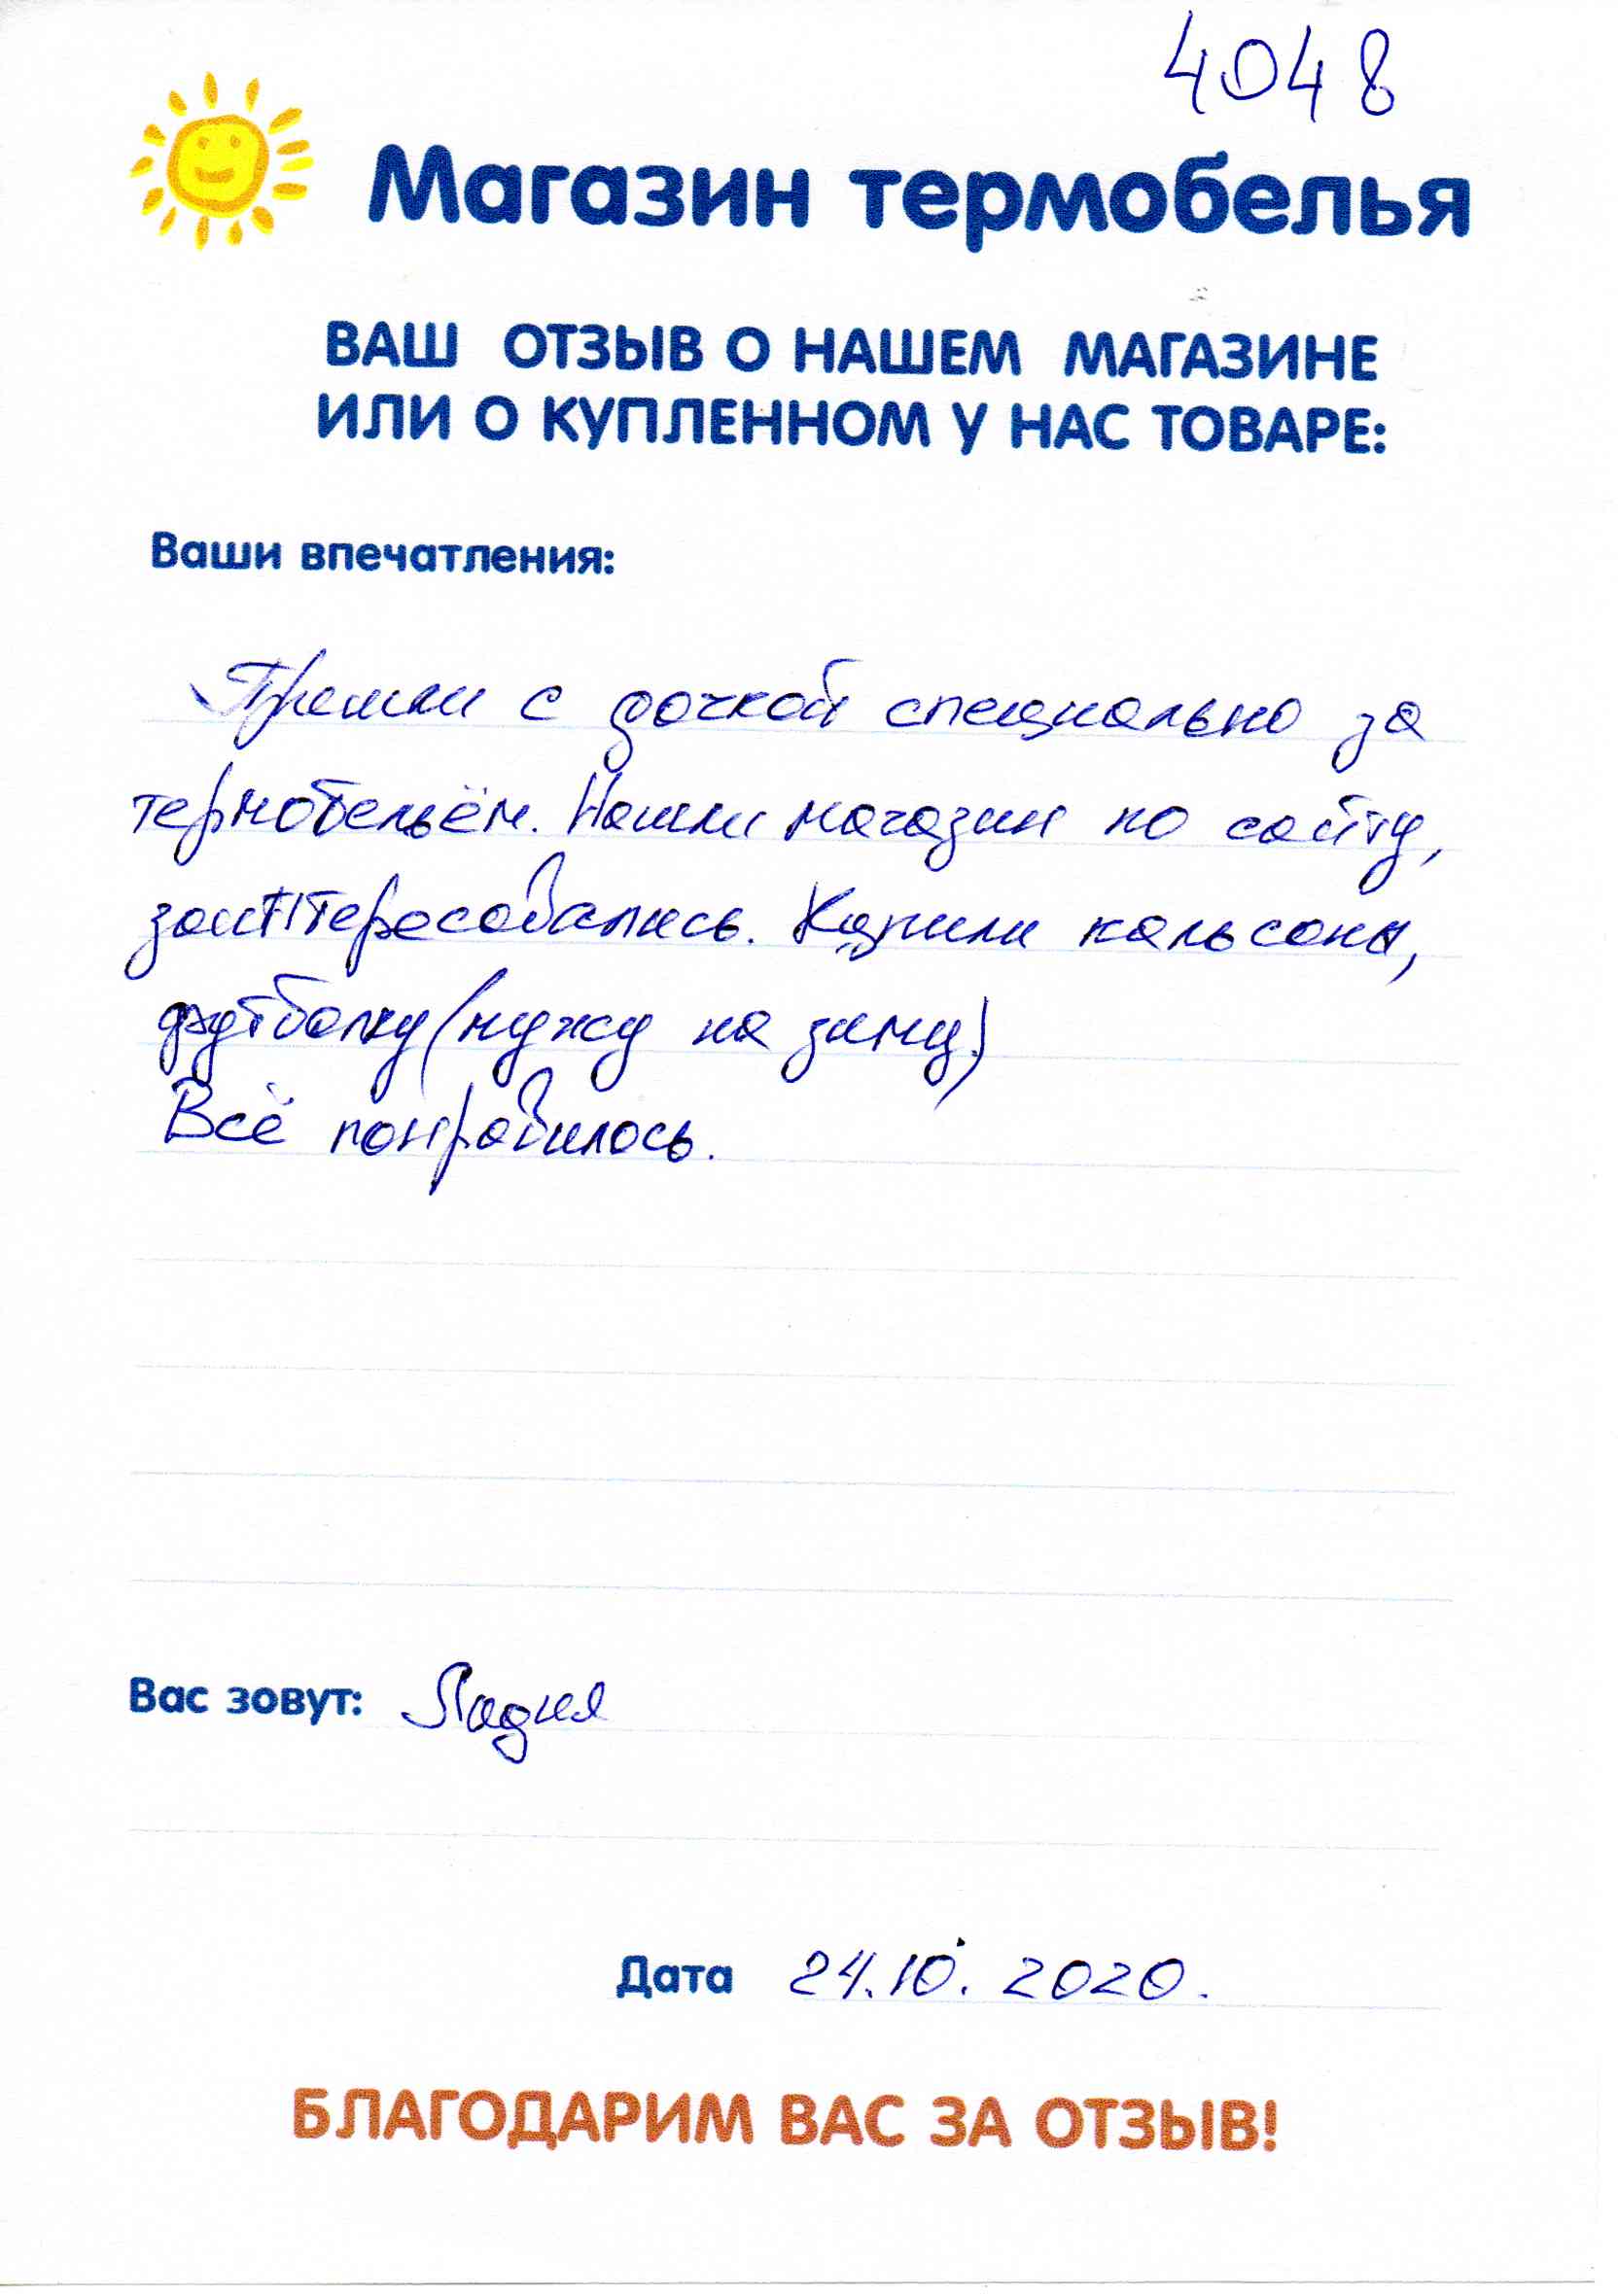 4048
Магазин термобелья
ВАШ ОТЗЫВ О НАШЕМ МАГАЗИНЕ
ИЛИ О КУПЛЕННОМ У НАС ТОВАРЕ:
Ваши впечатления:
Пришли с дочкой специально за
термобельём. Нашли магазин по сайту,
заинтересовались. Купили кальсоны,
футболку (мужу на зиму.)
Всё понравилось.
Вас зовут: Лидия
Дата 24.10. 2020.
БЛАГОДАРИМ ВАС ЗА ОТЗЫВ!